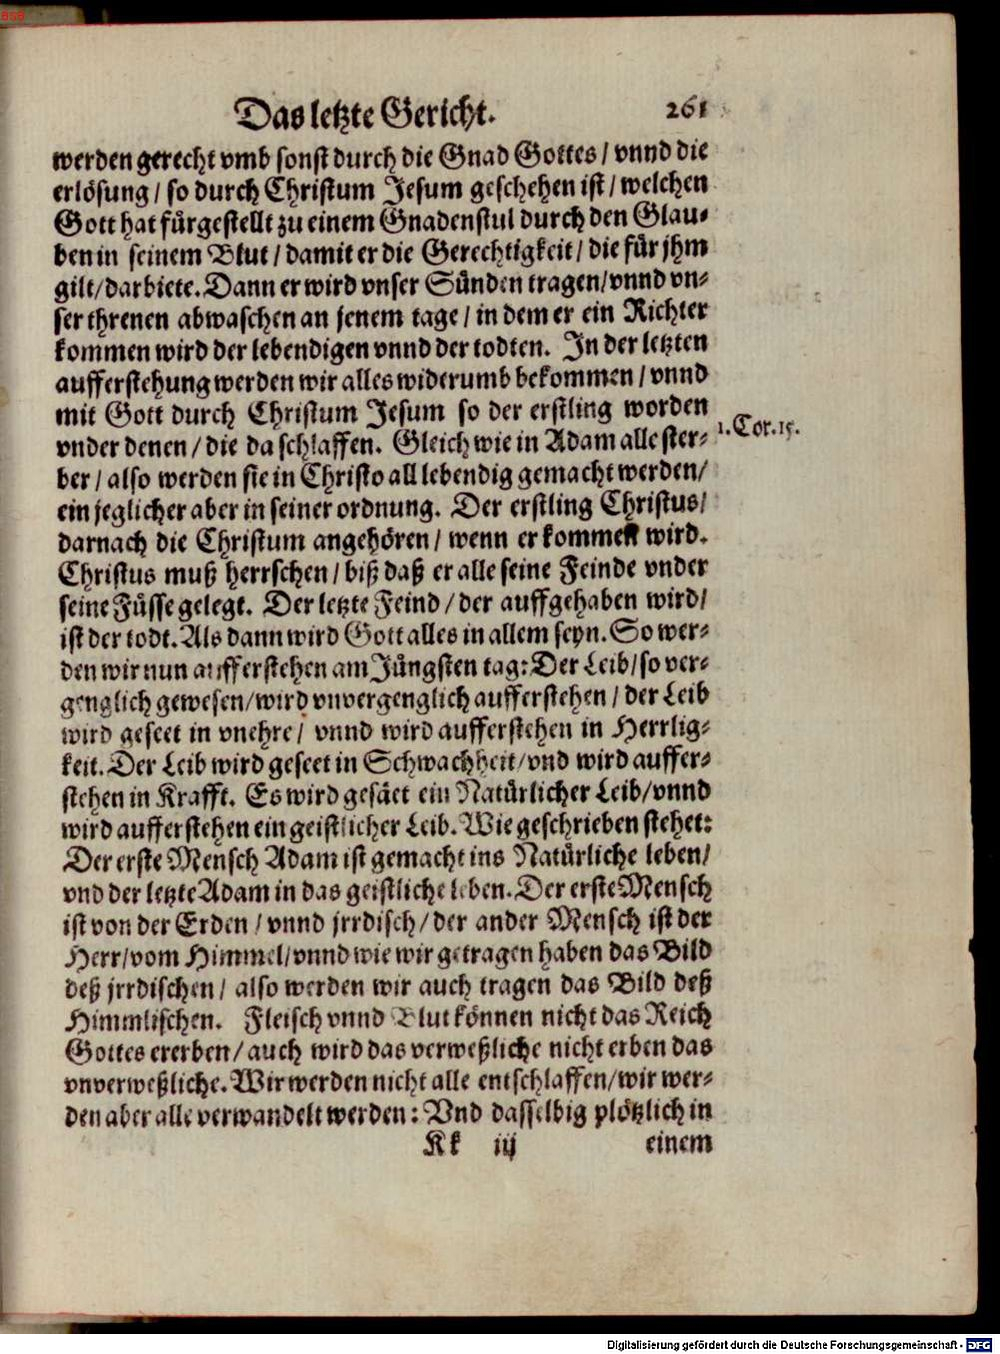 Das letzte Gericht. 261
werden gerecht vmb sonst durch die Gnad Gottes / vnnd die
erlösung / so durch Christum Jesum geschehen ist / welchen
Gott hat fürgestellt zu einem Gnadenstul durch den Glau-
ben in seinem Blut / damit er die Gerechtigkeit / die für jhm
gilt / darbiete. Dann er wird vnser Sünden tragen / vnnd vn-
ser threnen abwaschen an jenem tage / in dem er ein Richter
kommen wird der lebendigen vnnd der todten. In der letzten
aufferstehung werden wir alles widerumb bekommen / vnnd
mit Gott durch Christum Jesum so der erstling worden
vnder denen / die da schlaffen. Gleich wie in Adam alle ster-
1. Cor. 15.
ber / also werden sie in Christo all lebendig gemacht werden /
ein jeglicher aber in seiner ordnung. Der erstling Christus /
darnach die Christum angehören / wenn er kommen wird.
Christus muß herrschen / biß daß er alle seine Feinde vnder
seine Füsse gelegt. Der letzte Feind / der auffgehaben wird /
ist der todt. Als dann wird Gott alles in allem seyn. So wer-
den wir nun aufferstehen am Jüngsten tag: Der Leib / so ver-
genglich gewesen / wird vnvergenglich aufferstehen / der Leib
wird geseet in vnehre / vnnd wird aufferstehen in Herrlig-
keit. Der Leib wird geseet in Schwachheit / vnd wird auffer-
stehen in Krafft. Es wird gesäet ein Natürlicher Leib / vnnd
wird aufferstehen ein geistlicher Leib. Wie geschrieben stehet:
Der erste Mensch Adam ist gemacht ins Natürliche leben /
vnd der letzte Adam in das geistliche leben. Der erste Mensch
ist von der Erden / vnnd jrrdisch / der ander Mensch ist der
Herr / vom Himmel / vnnd wie wir getragen haben das Bild
deß jrrdischen / also werden wir auch tragen das Bild deß
Himmlischen. Fleisch vnnd Blut können nicht das Reich
Gottes ererben / auch wird das verweßliche nicht erben das
vnverweßliche. Wir werden nicht alle entschlaffen / wir wer-
den aber alle verwandelt werden: Vnd dasselbig plötzlich in
Kk iij einem
Digitalisierung gefördert durch die Deutsche Forschungsgemeinschaft - DFG